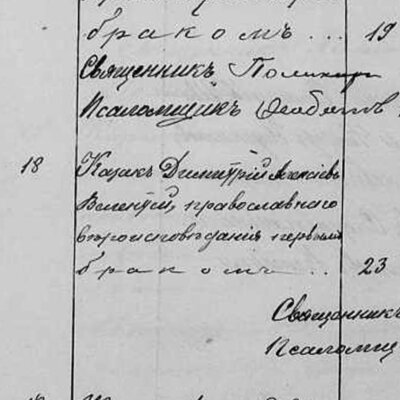 бракомъ... 19
Священникъ Поликарп
Псаломщикъ
18 Казакъ Димитрій Алексіевъ
православнаго
вѣроисповѣданія, первымъ
бракомъ... 23
Священникъ
Псаломщ